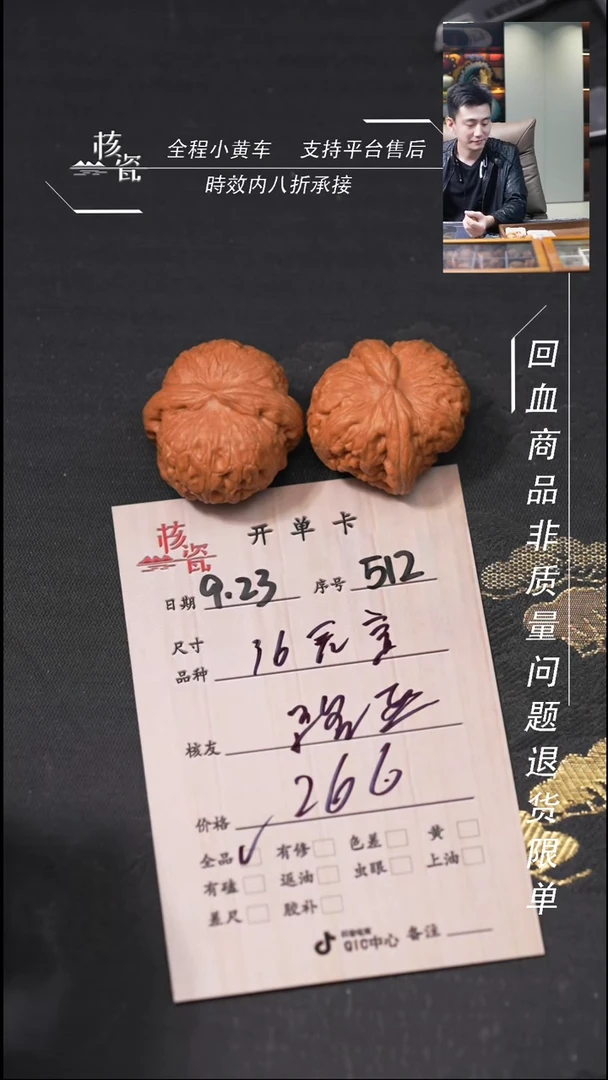 核瓷
全程小黄车 支持平台售后
時效内八折承接
回血商品非质量问题退货限单
核瓷 开单卡
日期 9.23 序号 512
尺寸
品种 36 元宝
核友
价格 266
全品 ✓ 有修 色差 黄
有磕 返油 虫眼 上油
差尺 胶补
抖音电商
QIC中心 备注